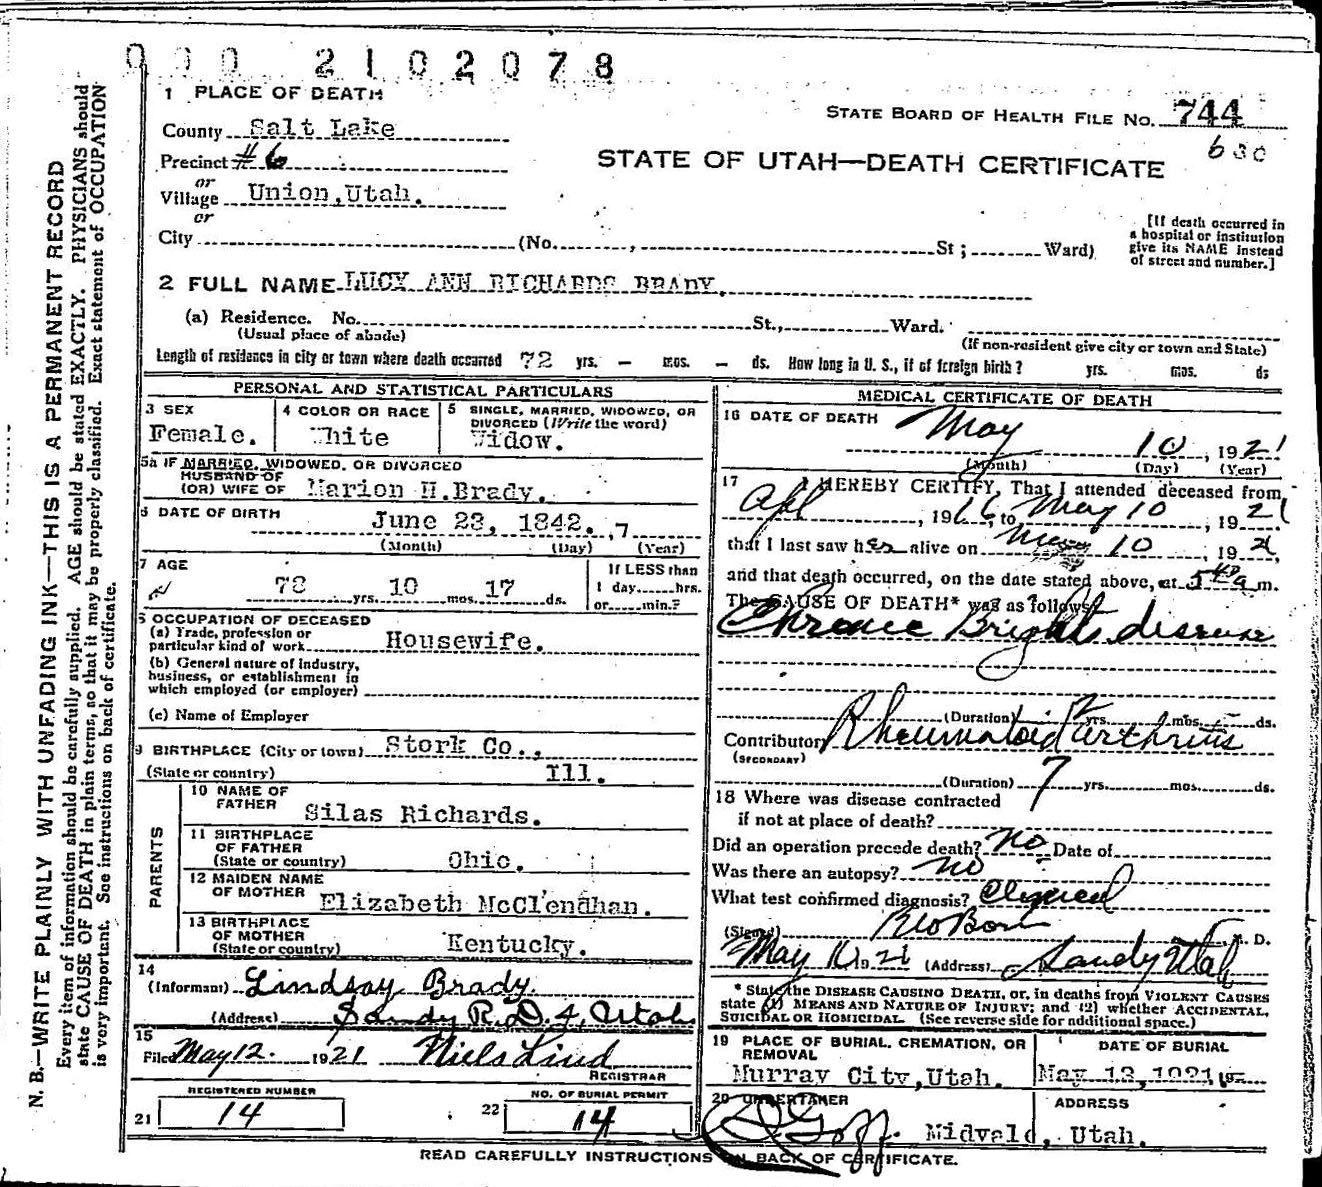 0 0 0 2 1 0 2 0 7 8
1 PLACE OF DEATH
STATE BOARD OF HEALTH FILE NO. 744
County Salt Lake
630
Precinct #6
STATE OF UTAH—DEATH CERTIFICATE
or
Village Union, Utah.
or
City (No. , St; Ward)
[If death occurred in
a hospital or institution
give its NAME instead
of street and number.]
2 FULL NAME LUCY ANN RICHARDS BRADY.
(a) Residence. No. St., Ward.
(Usual place of abode) (If non-resident give city or town and State)
Length of residence in city or town where death occurred 72 yrs. – mos. – ds. How long in U. S., if of foreign birth? yrs. mos. ds
PERSONAL AND STATISTICAL PARTICULARS
3 SEX 4 COLOR OR RACE 5 SINGLE, MARRIED, WIDOWED, OR
DIVORCED (Write the word)
Female. White Widow.
5a IF MARRIED, WIDOWED, OR DIVORCED
HUSBAND OF
(OR) WIFE OF Marion H.Brady.
6 DATE OF BIRTH June 23, 1842. ,7
(Month) (Day) (Year)
7 AGE If LESS than
78 yrs. 10 mos. 17 ds. 1 day hrs.
or min.?
8 OCCUPATION OF DECEASED
(a) Trade, profession or
particular kind of work Housewife.
(b) General nature of industry,
business, or establishment in
which employed (or employer)
(c) Name of Employer
9 BIRTHPLACE (City or town) Stork Co.,
(State or country) Ill.
PARENTS
10 NAME OF
FATHER Silas Richards.
11 BIRTHPLACE
OF FATHER
(State or country) Ohio.
12 MAIDEN NAME
OF MOTHER Elizabeth McClendhan.
13 BIRTHPLACE
OF MOTHER
(State or country) Kentucky.
14
(Informant) Lindsay Brady.
(Address) Sandy R.D. 1, Utah.
15
Filed May 12. 1921 Niels Lind
REGISTRAR
REGISTERED NUMBER NO. OF BURIAL PERMIT
21 14 22 14
MEDICAL CERTIFICATE OF DEATH
16 DATE OF DEATH May 10, 1921
(Month) (Day) (Year)
17 I HEREBY CERTIFY, That I attended deceased from
Apl , 1916, to May 10, 1921
that I last saw her alive on May 10, 192
and that death occurred, on the date stated above, at 5 40 a m.
The CAUSE OF DEATH* was as follows:
Chronic Brights disease
(Duration) 2 yrs. mos. – ds.
Contributory Rheumatoid arthritis
(SECONDARY)
(Duration) 7 yrs. mos. ds.
18 Where was disease contracted
if not at place of death?
Did an operation precede death? No Date of
Was there an autopsy? no
What test confirmed diagnosis? Clinical
(Signed) D.
May 1921 (Address) Sandy Utah
* State the DISEASE CAUSING DEATH, or, in deaths from VIOLENT CAUSES
state (1) MEANS AND NATURE OF INJURY; and (2) whether ACCIDENTAL,
SUICIDAL OR HOMICIDAL. (See reverse side for additional space.)
19 PLACE OF BURIAL, CREMATION, OR
REMOVAL DATE OF BURIAL
Murray City, Utah. May 13, 1921 19
20 UNDERTAKER ADDRESS
Goff. Midvale, Utah.
READ CAREFULLY INSTRUCTIONS ON BACK OF CERTIFICATE.
N. B.—WRITE PLAINLY WITH UNFADING INK—THIS IS A PERMANENT RECORD
Every item of information should be carefully supplied. AGE should be stated EXACTLY. PHYSICIANS should
state CAUSE OF DEATH in plain terms, so that it may be properly classified. Exact statement of OCCUPATION
is very important. See instructions on back of certificate.